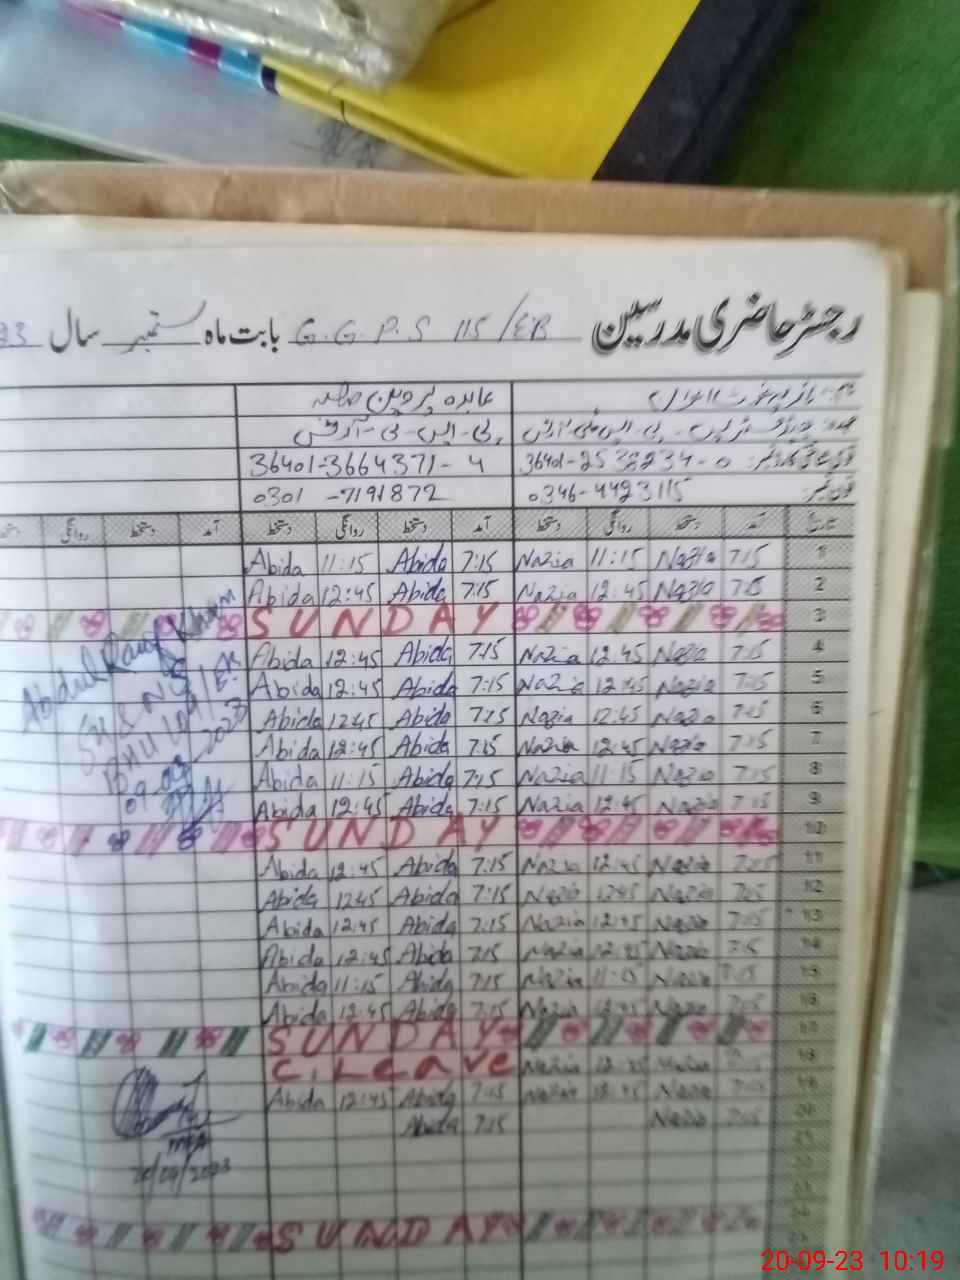 رجسٹر حاضری مدرسین G.G.P.S 115/EB بابت ماہ ستمبر سال
عابدہ پروین
36401-3664371-4
0346-4423115 0301-7191872
تاریخ آمد دستخط روانگی دستخط آمد دستخط روانگی دستخط آمد دستخط روانگی
1 7:15 Nazia 11:15 Nazia 7:15 Abida 11:15 Abida
2 7:15 Nazia 12:45 Nazia 7:15 Abida 12:45 Abida
3 SUNDAY
4 7:15 Nazia 12:45 Nazia 7:15 Abida 12:45 Abida
5 7:15 Nazia 12:45 Nazia 7:15 Abida 12:45 Abida
6 7:15 Nazia 12:45 Nazia 7:15 Abida 12:45 Abida
7 7:15 Nazia 12:45 Nazia 7:15 Abida 12:45 Abida
8 7:15 Nazia 11:15 Nazia 7:15 Abida 11:15 Abida
9 7:15 Nazia 12:45 Nazia 7:15 Abida 12:45 Abida
10 SUNDAY
11 7:15 Nazia 12:45 Nazia 7:15 Abida 12:45 Abida
12 7:15 Nazia 1245 Nazia 7:15 Abida 1245 Abida
13 7:15 Nazia 12:45 Nazia 7:15 Abida 12:45 Abida
14 7:15 Nazia 12:45 Nazia 7:15 Abida 12:45 Abida
15 7:15 Nazia 11:15 Nazia 7:15 Abida 11:15 Abida
16 7:15 Nazia 12:45 Nazia 7:15 Abida 12:45 Abida
17 SUNDAY
18 Nazia 12:45 Nazia C. Leave
19 7:15 Nazia 12:45 Nazia 7:15 Abida 12:45 Abida
20 7:15 Nazia 7:15 Abida
21
22
23
24 SUNDAY
25
Abdul Rauf Khan
SH & NS
BHU
09.09.2023
MEA
20/09/2023
20-09-23 10:19